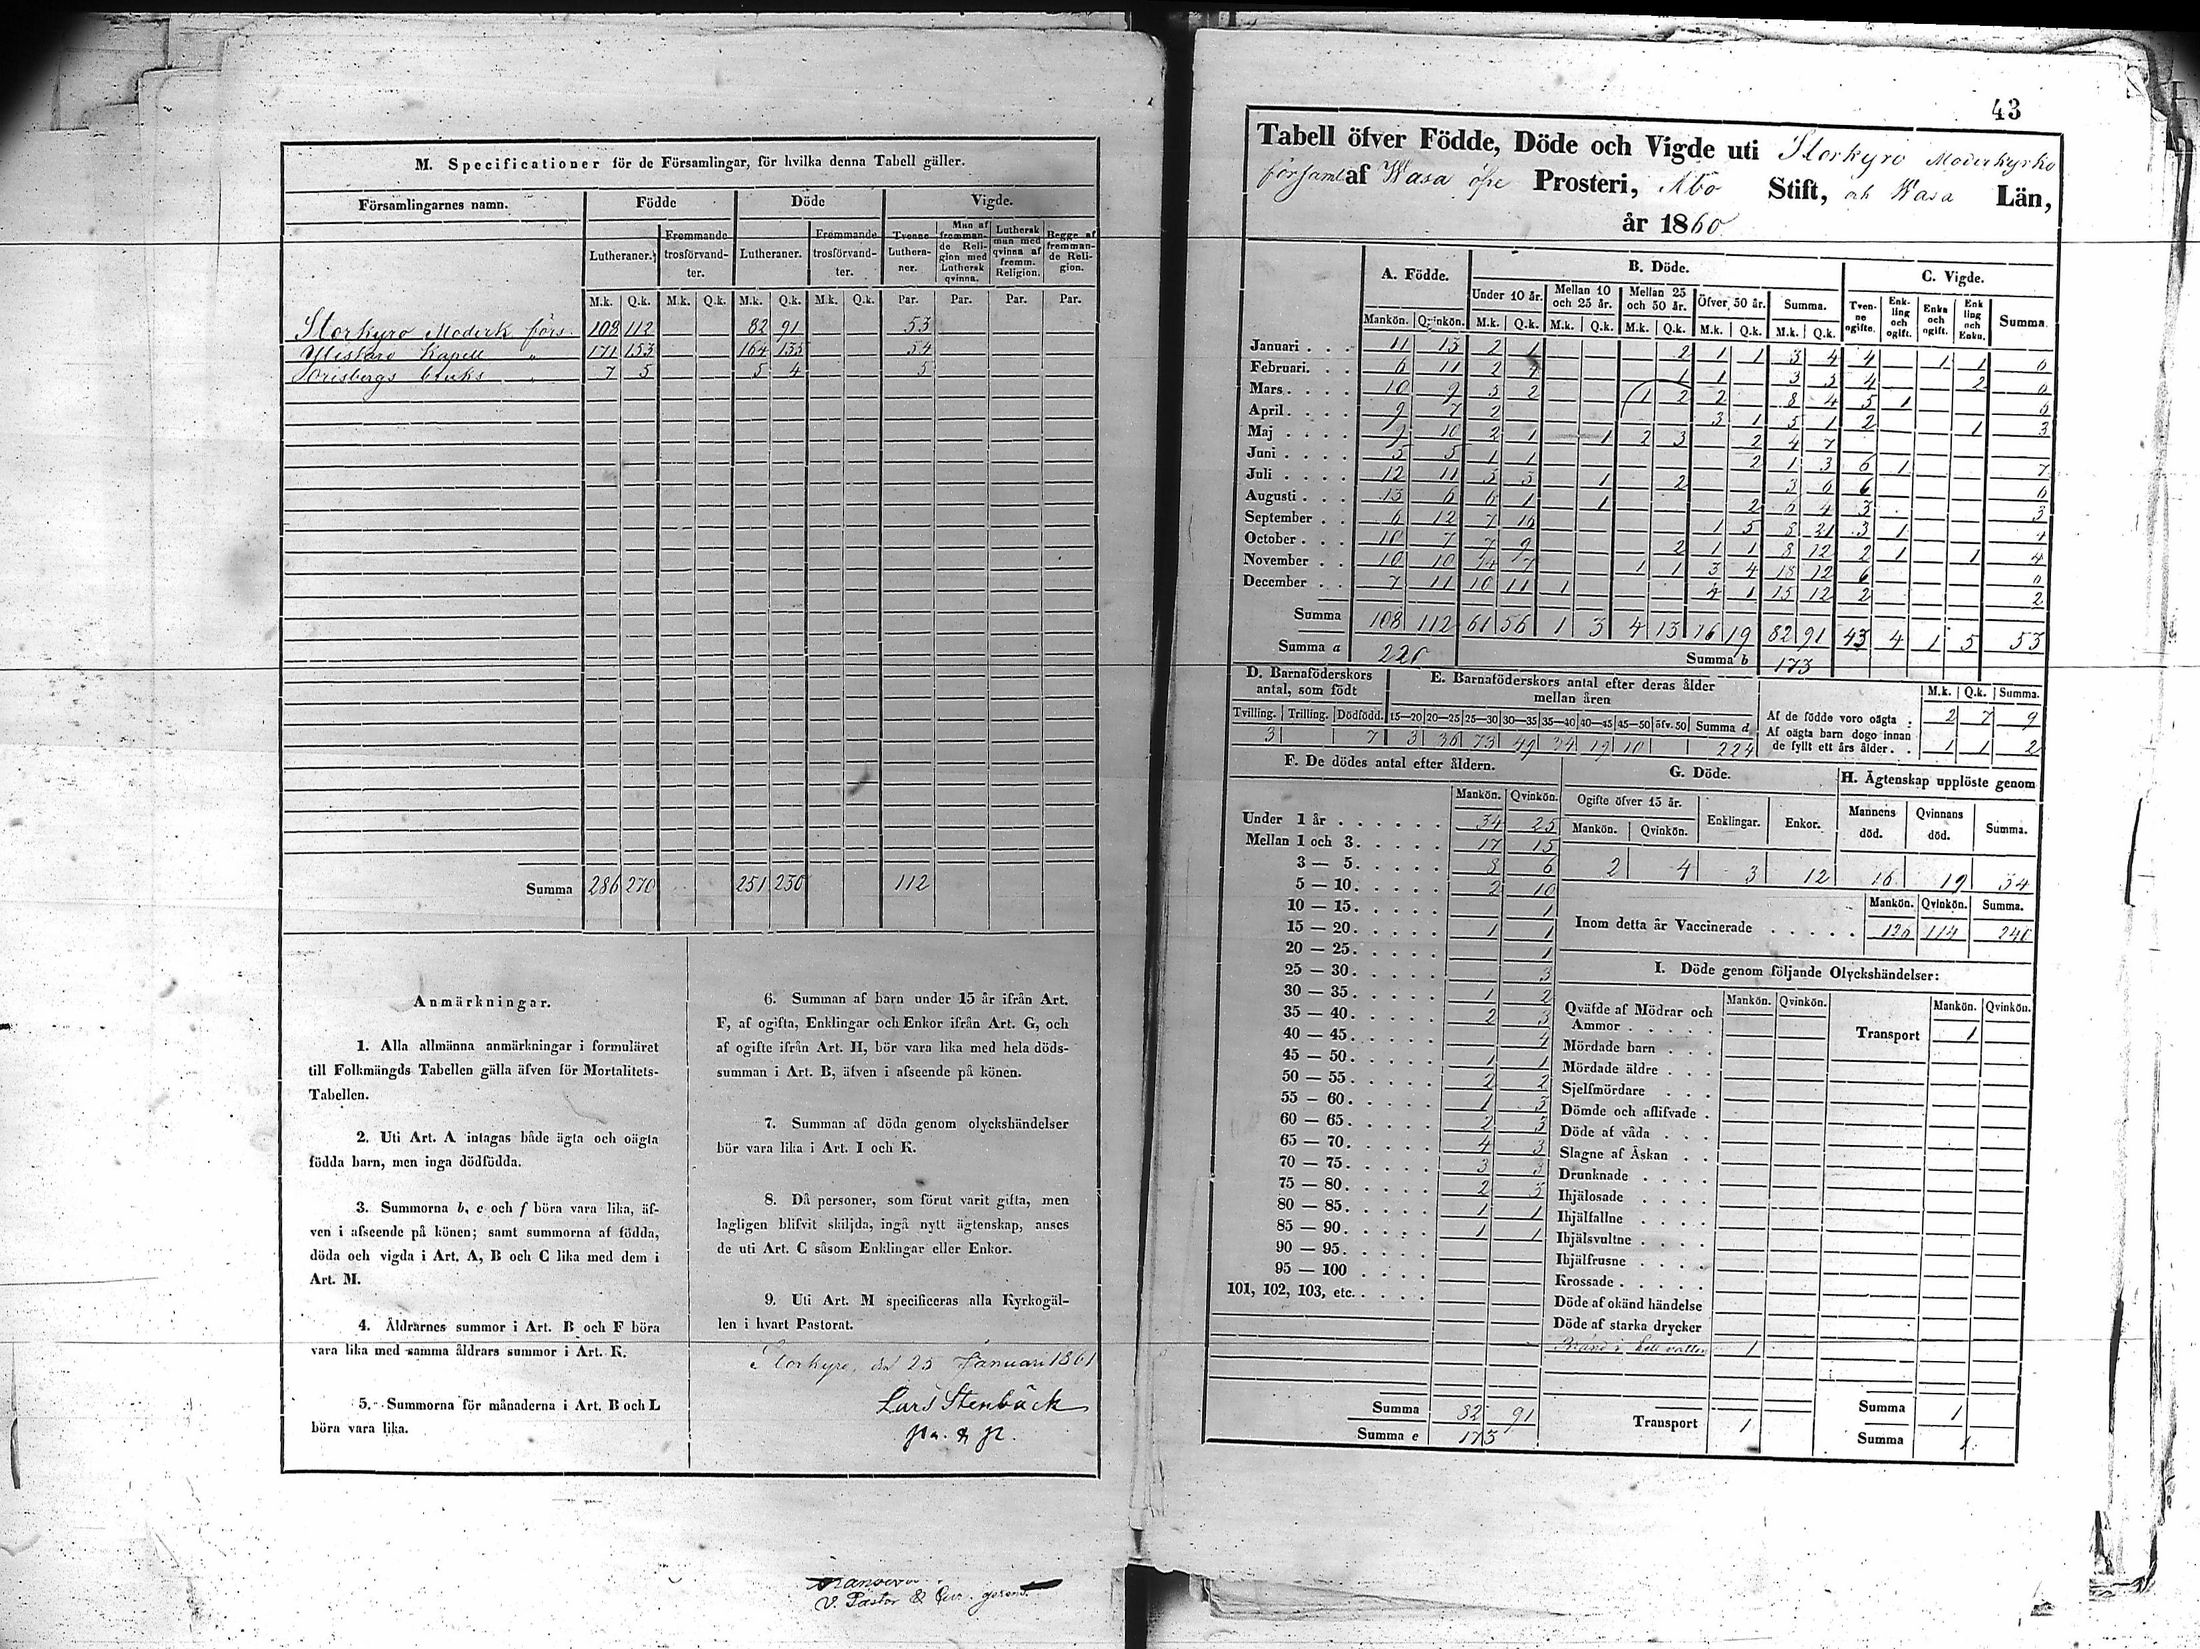 M. Specificationer för de Församlingar, för hvilka denna Tabell gäller.
Församlingarnes namn. Födde Döde Vigde.
Lutheraner. Fremmande trosförvandter. Lutheraner. Fremmande trosförvandter. Tvenne Lutheraner. Man af fremmande Religion med Luthersk qvinna. Luthersk man med qvinna af fremm. Religion. Begge af fremmande Religion.
M.k. Q.k. M.k. Q.k. M.k. Q.k. M.k. Q.k. Par. Par. Par. Par.
Storkyro Moderk. förs. 108 112 82 91 53
Ylistaro Kapell " 171 153 164 135 54
Orisbergs bruks " 7 5 5 4 5
Summa 286 270 251 230 112
Anmärkningar.
1. Alla allmänna anmärkningar i formuläret
till Folkmängds Tabellen gälla äfven för Mortalitets-
Tabellen.
2. Uti Art. A intagas både ägta och oägta
födda barn, men inga dödfödda.
3. Summorna b, e och f böra vara lika, äf-
ven i afseende på könen; samt summorna af födda,
döda och vigda i Art. A, B och C lika med dem i
Art. M.
4. Åldrarnes summor i Art. B och F böra
vara lika med samma åldrars summor i Art. K.
5. Summorna för månaderna i Art. B och L
böra vara lika.
6. Summan af barn under 15 år ifrån Art.
F, af ogifta, Enklingar och Enkor ifrån Art. G, och
af ogifte ifrån Art. H, bör vara lika med hela döds-
summan i Art. B, äfven i afseende på könen.
7. Summan af döda genom olyckshändelser
bör vara lika i Art. I och K.
8. Då personer, som förut varit gifta, men
lagligen blifvit skiljda, ingå nytt ägtenskap, anses
de uti Art. C såsom Enklingar eller Enkor.
9. Uti Art. M specificeras alla Kyrkogäl-
len i hvart Pastorat.
Storkyro, den 25 Januari 1861
Lars Stenbäck
V. Pastor &
43
Tabell öfver Födde, Döde och Vigde uti Storkyro Moderkyrko
församl af Wasa öfre Prosteri, Åbo Stift, och Wasa Län,
år 1860
A. Födde. B. Döde. C. Vigde.
Under 10 år. Mellan 10 och 25 år. Mellan 25 och 50 år. Öfver 50 år. Summa. Tvenne ogifte. Enkling och ogift. Enka och ogift. Enkling och Enka. Summa.
Mankön. Qvinkön. M.k. Q.k. M.k. Q.k. M.k. Q.k. M.k. Q.k. M.k. Q.k.
Januari 11 13 2 1 2 1 1 3 4 4 1 1 6
Februari. 6 11 2 1 1 3 4 2 6
Mars 10 9 5 2 1 2 2 8 4 5 1 6
April 9 7 2 3 1 5 1 2 1 3
Maj 9 10 2 1 1 2 3 2 4 7
Juni 5 5 1 1 2 1 3 6 1 7
Juli 12 11 3 3 1 2 3 6 6 6
Augusti 13 6 6 1 1 2 6 4 3 3
September 6 12 7 16 1 5 8 21 3 1 4
October 10 7 7 9 2 1 1 8 12 2 1 1 4
November 10 10 14 7 1 1 3 4 18 12 6 6
December 7 11 10 11 1 4 1 15 12 2 2
Summa 108 112 61 56 1 3 4 13 16 19 82 91 43 4 1 5 53
Summa a 220 Summa b 173
D. Barnaföderskors antal, som födt
Tvilling. Trilling. Dödfödd.
3 7
E. Barnaföderskors antal efter deras ålder mellan åren
15—20 20—25 25—30 30—35 35—40 40—45 45—50 öfv. 50 Summa d
3 36 73 49 34 19 10 224
M.k. Q.k. Summa.
Af de födde voro oägta 2 7 9
Af oägta barn dogo innan
de fyllt ett års ålder 1 1 2
F. De dödes antal efter åldern.
Mankön. Qvinkön.
Under 1 år 34 25
Mellan 1 och 3. 17 15
3 — 5. 8 6
5 — 10. 2 10
10 — 15. 1
15 — 20. 1 1
20 — 25. 1
25 — 30. 3
30 — 35. 1 2
35 — 40. 2 3
40 — 45. 4
45 — 50. 1 1
50 — 55. 2 2
55 — 60. 1 3
60 — 65. 2
65 — 70. 4 3
70 — 75. 3 3
75 — 80. 2
80 — 85. 1 1
85 — 90. 1 1
90 — 95.
95 — 100
101, 102, 103, etc.
Summa 82 91
Summa e 173
G. Döde.
Ogifte öfver 15 år. Enklingar. Enkor.
Mankön. Qvinkön.
2 4 3 12
H. Ägtenskap upplöste genom
Mannens död. Qvinnans död. Summa.
16 19 34
Mankön. Qvinkön. Summa.
Inom detta år Vaccinerade 126 114 240
I. Döde genom följande Olyckshändelser:
Mankön. Qvinkön. Mankön. Qvinkön.
Qväfde af Mödrar och
Ammor
Transport 1
Mördade barn
Mördade äldre
Sjelfmördare
Dömde och aflifvade
Döde af våda
Slagne af Åskan
Drunknade
Ihjälosade
Ihjälfallne
Ihjälsvultne
Ihjälfrusne
Krossade
Döde af okänd händelse
Döde af starka drycker
Bränd i hett vatten 1
Transport 1
Summa 1
Summa 1